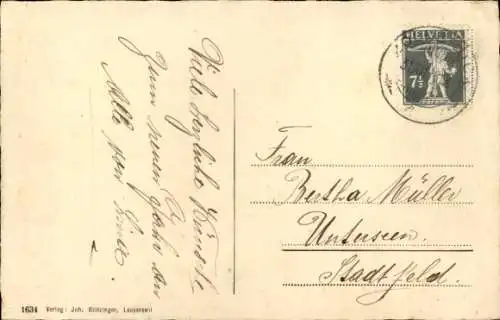 Viele herzliche Wünsche
zum neuen Jahr an
Alle von
HELVETIA
7½
Frau
Bertha Müller
Unterseen.
Stadtfeld.
1634 Verlag: Joh. Lauperswil